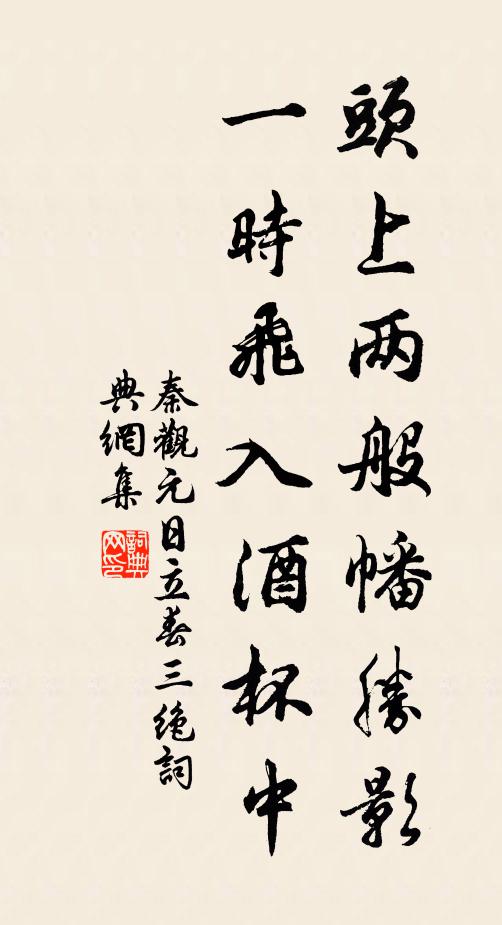 頭上两般幡勝影
一時飛入酒杯中
秦觀元日立春三绝詞
典網集
詞典网印